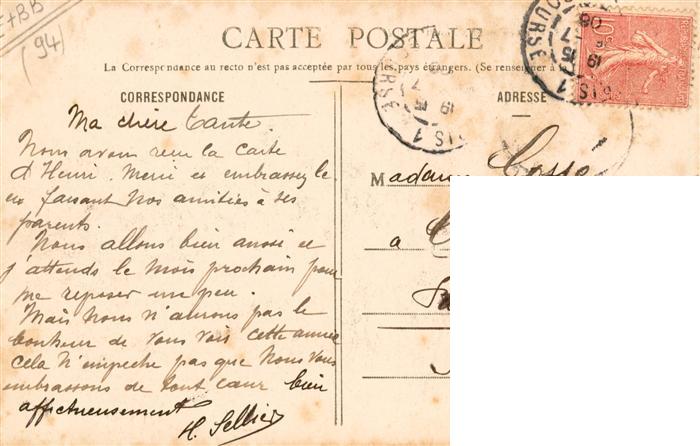 E+BB
(94)
CARTE POSTALE
La Correspondance au recto n'est pas acceptée par tous les pays étrangers. (Se renseigner à
CORRESPONDANCE
ADRESSE
Ma chère Tante.
Nous avons reçu la carte
d'Henri. Merci et embrassez le
en faisant nos amitiés à ses
parents.
Nous allons bien aussi et
j'attends le mois prochain pour
me reposer un peu.
Mais nous n'aurons pas le
bonheur de vous voir cette année
cela n'empeche pas que nous vous
embrassons de tout cœur bien
affectueusement
H. Sellier
PARIS 1
BOURSE
10c
Madame
à